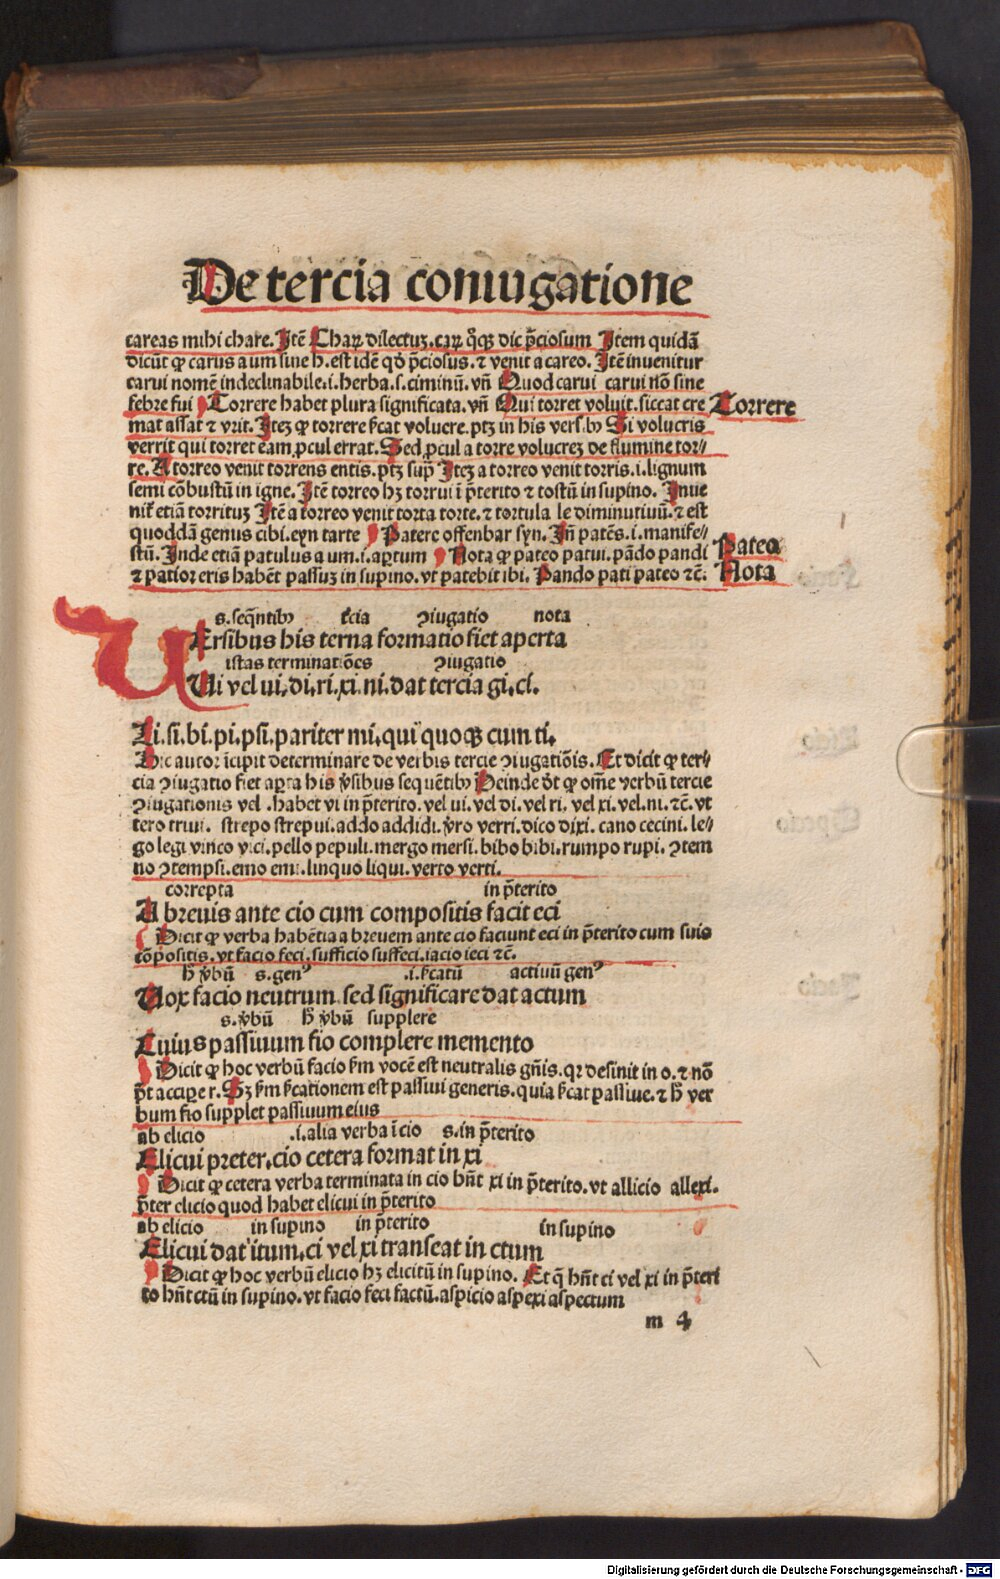 De tercia coniugatione
careas mihi chare. Itē Chaꝝ dilectuꝫ. caꝝ qͥqꝫ dic p̄ciosum Item quidā
dicūt ꝙ carus a um sine h. est idē qđ p̄ciosus. ⁊ venit a careo. Itē inuenitur
carui nomē indeclinabile .i. herba .s. ciminū. vñ Quod carui carui nō sine
febre fui Torrere habet plura significata. vñ Qui torret voluit. siccat cre
Torrere
mat assat ⁊ vrit. Iteꝫ ꝙ torrere ſcat volucre. ptꝫ in his vers. hꝰ Si volucris
verrit qui torret eam ꝓcul errat. Sed ꝓcul a torre volucreꝫ de flumine tor⸗
re. A torreo venit torrens entis. ptꝫ supͣ Iteꝫ a torreo venit torris .i. lignum
semi cōbustū in igne. Itē torreo hꝫ torrui ī p̄terito ⁊ tostū in supino. Inue
nit̄ etiā torrituꝫ Itē a torreo venit torta torte. ⁊ tortula le diminutiuū. ⁊ est
quoddā genus cibi. eyn tarte Patere offenbar syn. Iñ patēs .i. manife⸗
stū. Inde etiā patulus a um .i. aꝑtum Nota ꝙ pateo patui. pādo pandi
Pateo
⁊ patior eris habēt passuꝫ in supino. vt patebit ibi. Pando pati pateo ⁊c̄.
Nota
s. seq̄ntibꝫ t̄cia ꝯiugatio nota
VErsibus his terna formatio fiet aperta
istas terminatiōes ꝯiugatio
Vi vel ui, di. ri. xi. ni. dat tercia gi. ci.
Li. si. bi. pi. psi. pariter mi. qui quoqꝫ cum ti.
Hic autor īcipit determinare de verbis tercie ꝯiugatiōis. Et dicit ꝙ ter⸗
cia ꝯiugatio fiet aꝑta his v̓sibus sequētibꝫ Deinde dt̓ ꝙ om̄e verbū tercie
ꝯiugationis vel . habet vi in p̄terito. vel ui. vel di. vel ri. vel xi. vel. ni. ⁊c̄. vt
tero triui. strepo strepui. addo addidi. v̓ro verri. dico dixi. cano cecini. le⸗
go legi vinco vici. pello pepuli. mergo mersi. bibo bibi. rumpo rupi. ꝯtem
no ꝯtempsi. emo emi. linquo liqui. verto verti.
correpta in p̄terito
A breuis ante cio cum compositis facit eci
Dicit ꝙ verba habētia a breuem ante cio faciunt eci in p̄terito cum suis
cōpositis. vt facio feci. sufficio suffeci. iacio ieci ⁊c̄.
h̓ v̓bū s. genꝰ .i. ſcatū actiuū genꝰ
Vox facio neutrum sed significare dat actum
s. v̓bū h̓ v̓bū supplere
Cuius passiuum fio complere memento
Dicit ꝙ hoc verbū facio ẜm vocē est neutralis gn̄is. qꝛ desinit in o. ⁊ nō
p̄t accipe r. Sꝫ ẜm ſcationem est passiui generis. quia ſcat passiue. ⁊ h̓ ver
bum fio supplet passiuum eius
ab elicio .i. alia verba ī cio s. in p̄terito
Elicui preter. cio cetera format in xi
Dicit ꝙ cetera verba terminata in cio hn̄t xi in p̄terito. vt allicio allexi.
p̄ter elicio quod habet elicui in p̄terito
ab elicio in supino in p̄terito in supino
Elicui dat itum. ci vel xi transeat in ctum
Dicit ꝙ hoc verbū elicio hꝫ elicitū in supino. Et q̄ hn̄t ci vel xi in p̄teri
to hn̄t ctū in supino. vt facio feci factū. aspicio aspexi aspectum
m 4
Digitalisierung gefördert durch die Deutsche Forschungsgemeinschaft - DFG